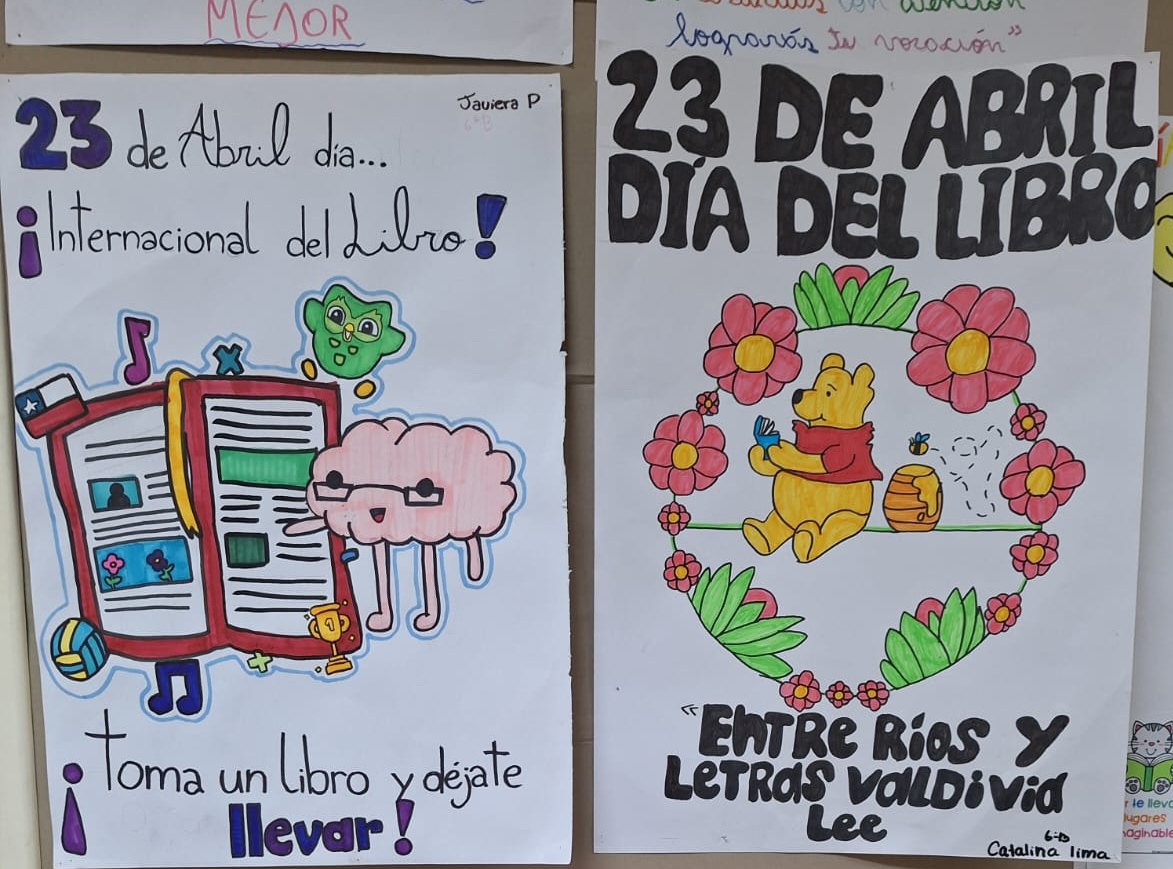 MEJOR
23 de Abril día...
Javiera P
6°B
¡Internacional del Libro!
¡Toma un libro y déjate
llevar!
1
con atención
lograrás tu vocación"
23 DE ABRIL
DÍA DEL LIBRO
"ENTRE RÍOS Y
LETRAS VALDIVIA
Lee
6-B
Catalina lima
te lleva
lugares